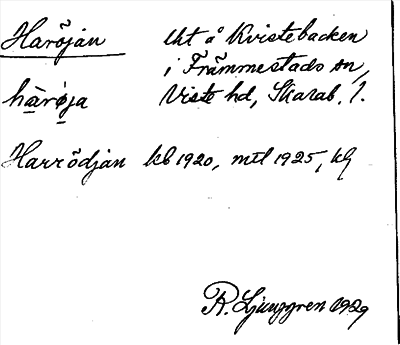 Haröjan lht å Kvistebacken
i Främmestads sn,
hàrø̣ja Viste hd, Skarab. l.
Harrödjan kb 1920, mtl 1925, kg
R. Ljunggren 1929